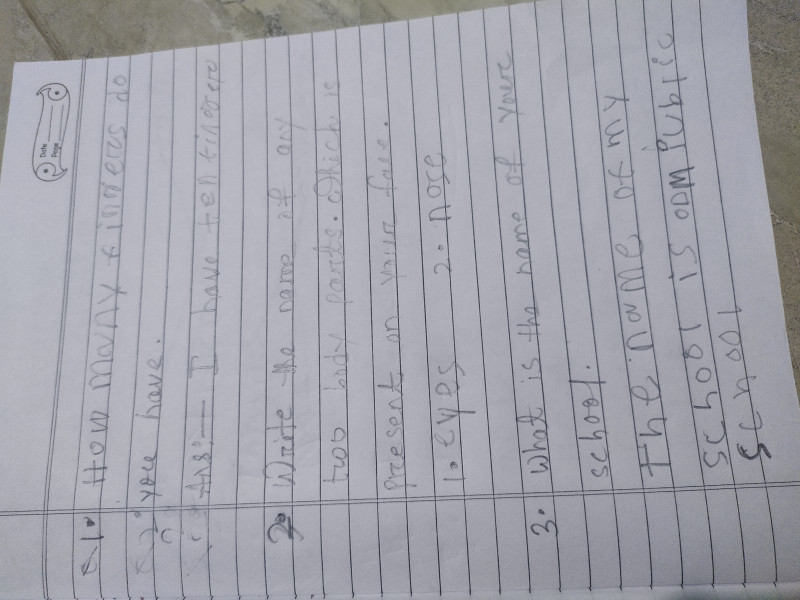 Date
Page
Q1. How many fingers do
you have.
Ans:— I have ten fingers
2. Write the name of any
two body parts. Which is
present on your face.
1. eyes 2. nose
3. What is the name of youre
school.
the name of my
school is ODM public
school